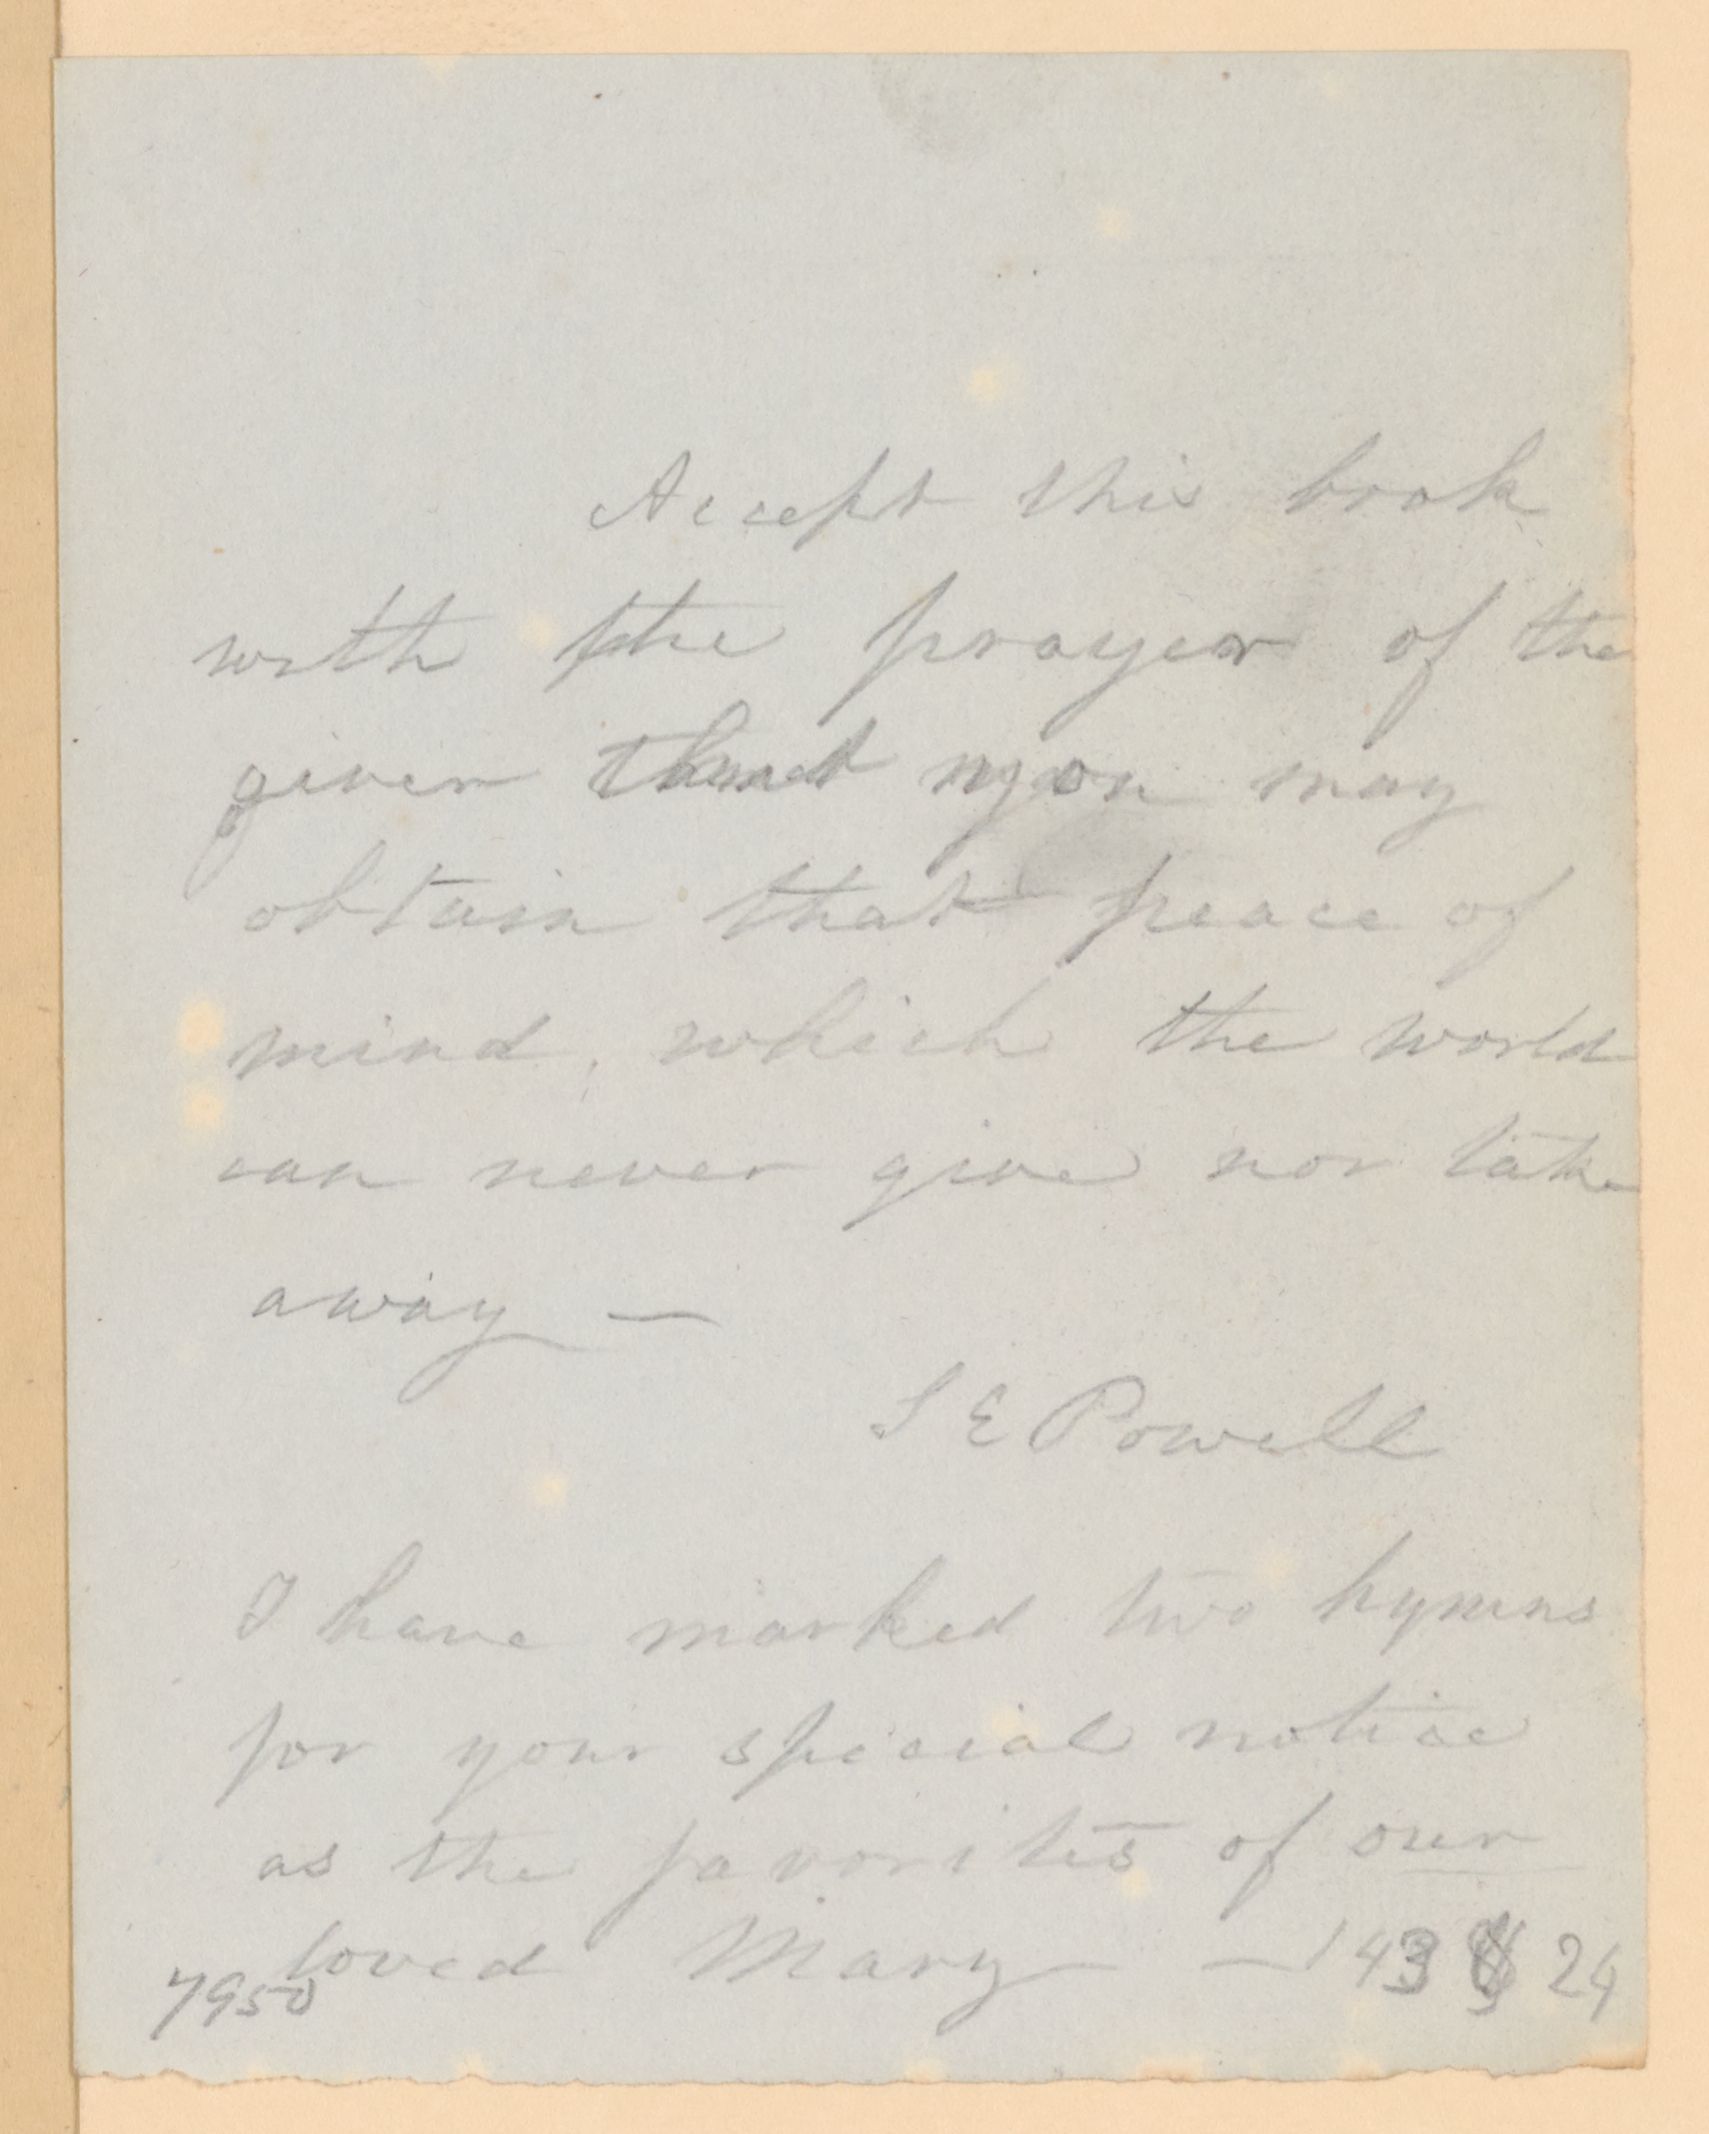 Accept this book
with the prayer of the
giver that you may
obtain that peace of
mind, which the world
can never give nor take
away —
S E Powell
I have marked two hymns
for your special notice
as the favorites of our
loved Mary — 143 & 24
7950